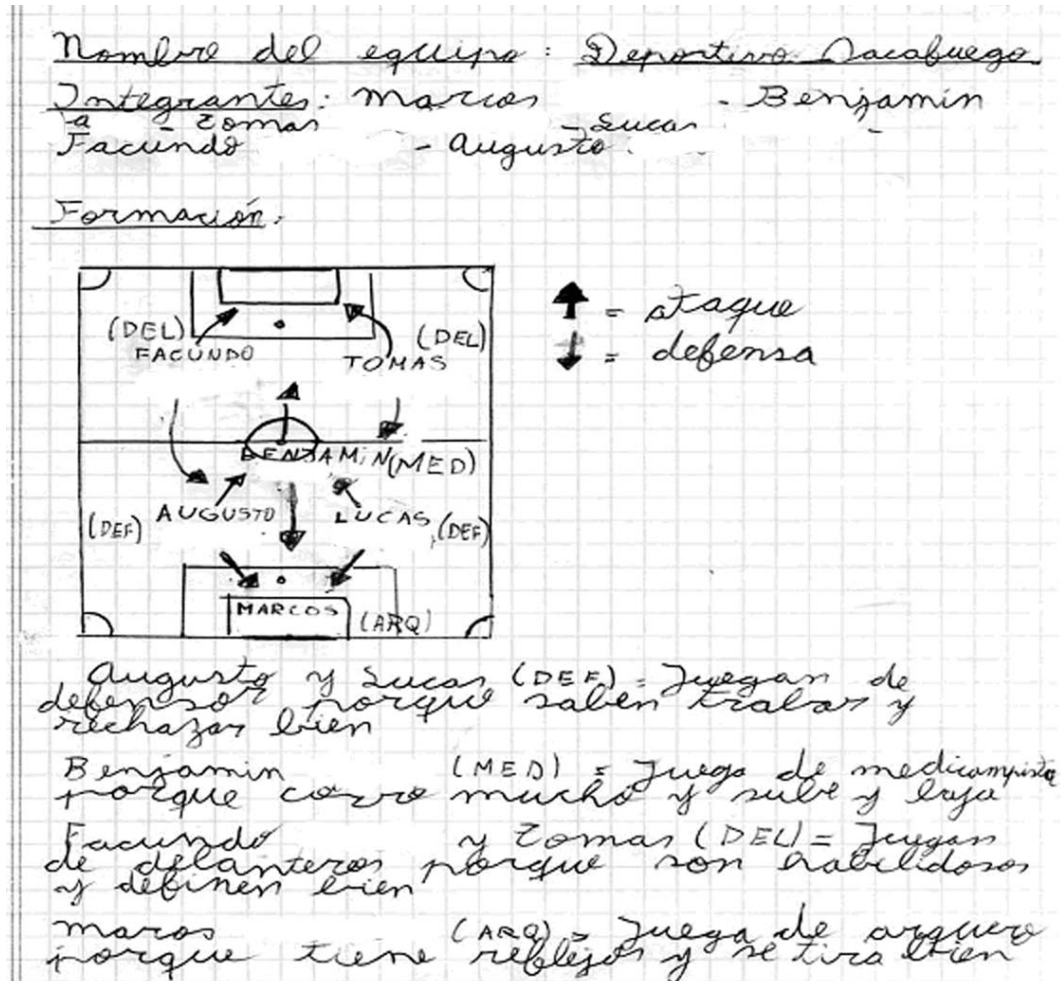 Nombre del equipo: Deportivo Sacafuego
Integrantes: Marcos - Benjamin
a - Tomas - Lucas -
Facundo - Augusto.
Formación:
(DEL) (DEL)
FACUNDO TOMAS
= ataque
= defensa
BENJAMiN (MED)
(DEF) AUGUSTO LUCAS (DEF)
MARCOS (ARQ)
Augusto y Lucas (DEF) = Juegan de
defensor porque saben trabar y
rechazar bien
Benjamin (MED) = Juega de mediocampista
porque corre mucho y sube y baja
Facundo y Tomas (DEL) = Juegan
de delanteros porque son habilidosos
y definen bien
Marcos (ARQ) = Juega de arquero
porque tiene reflejos y se tira bien